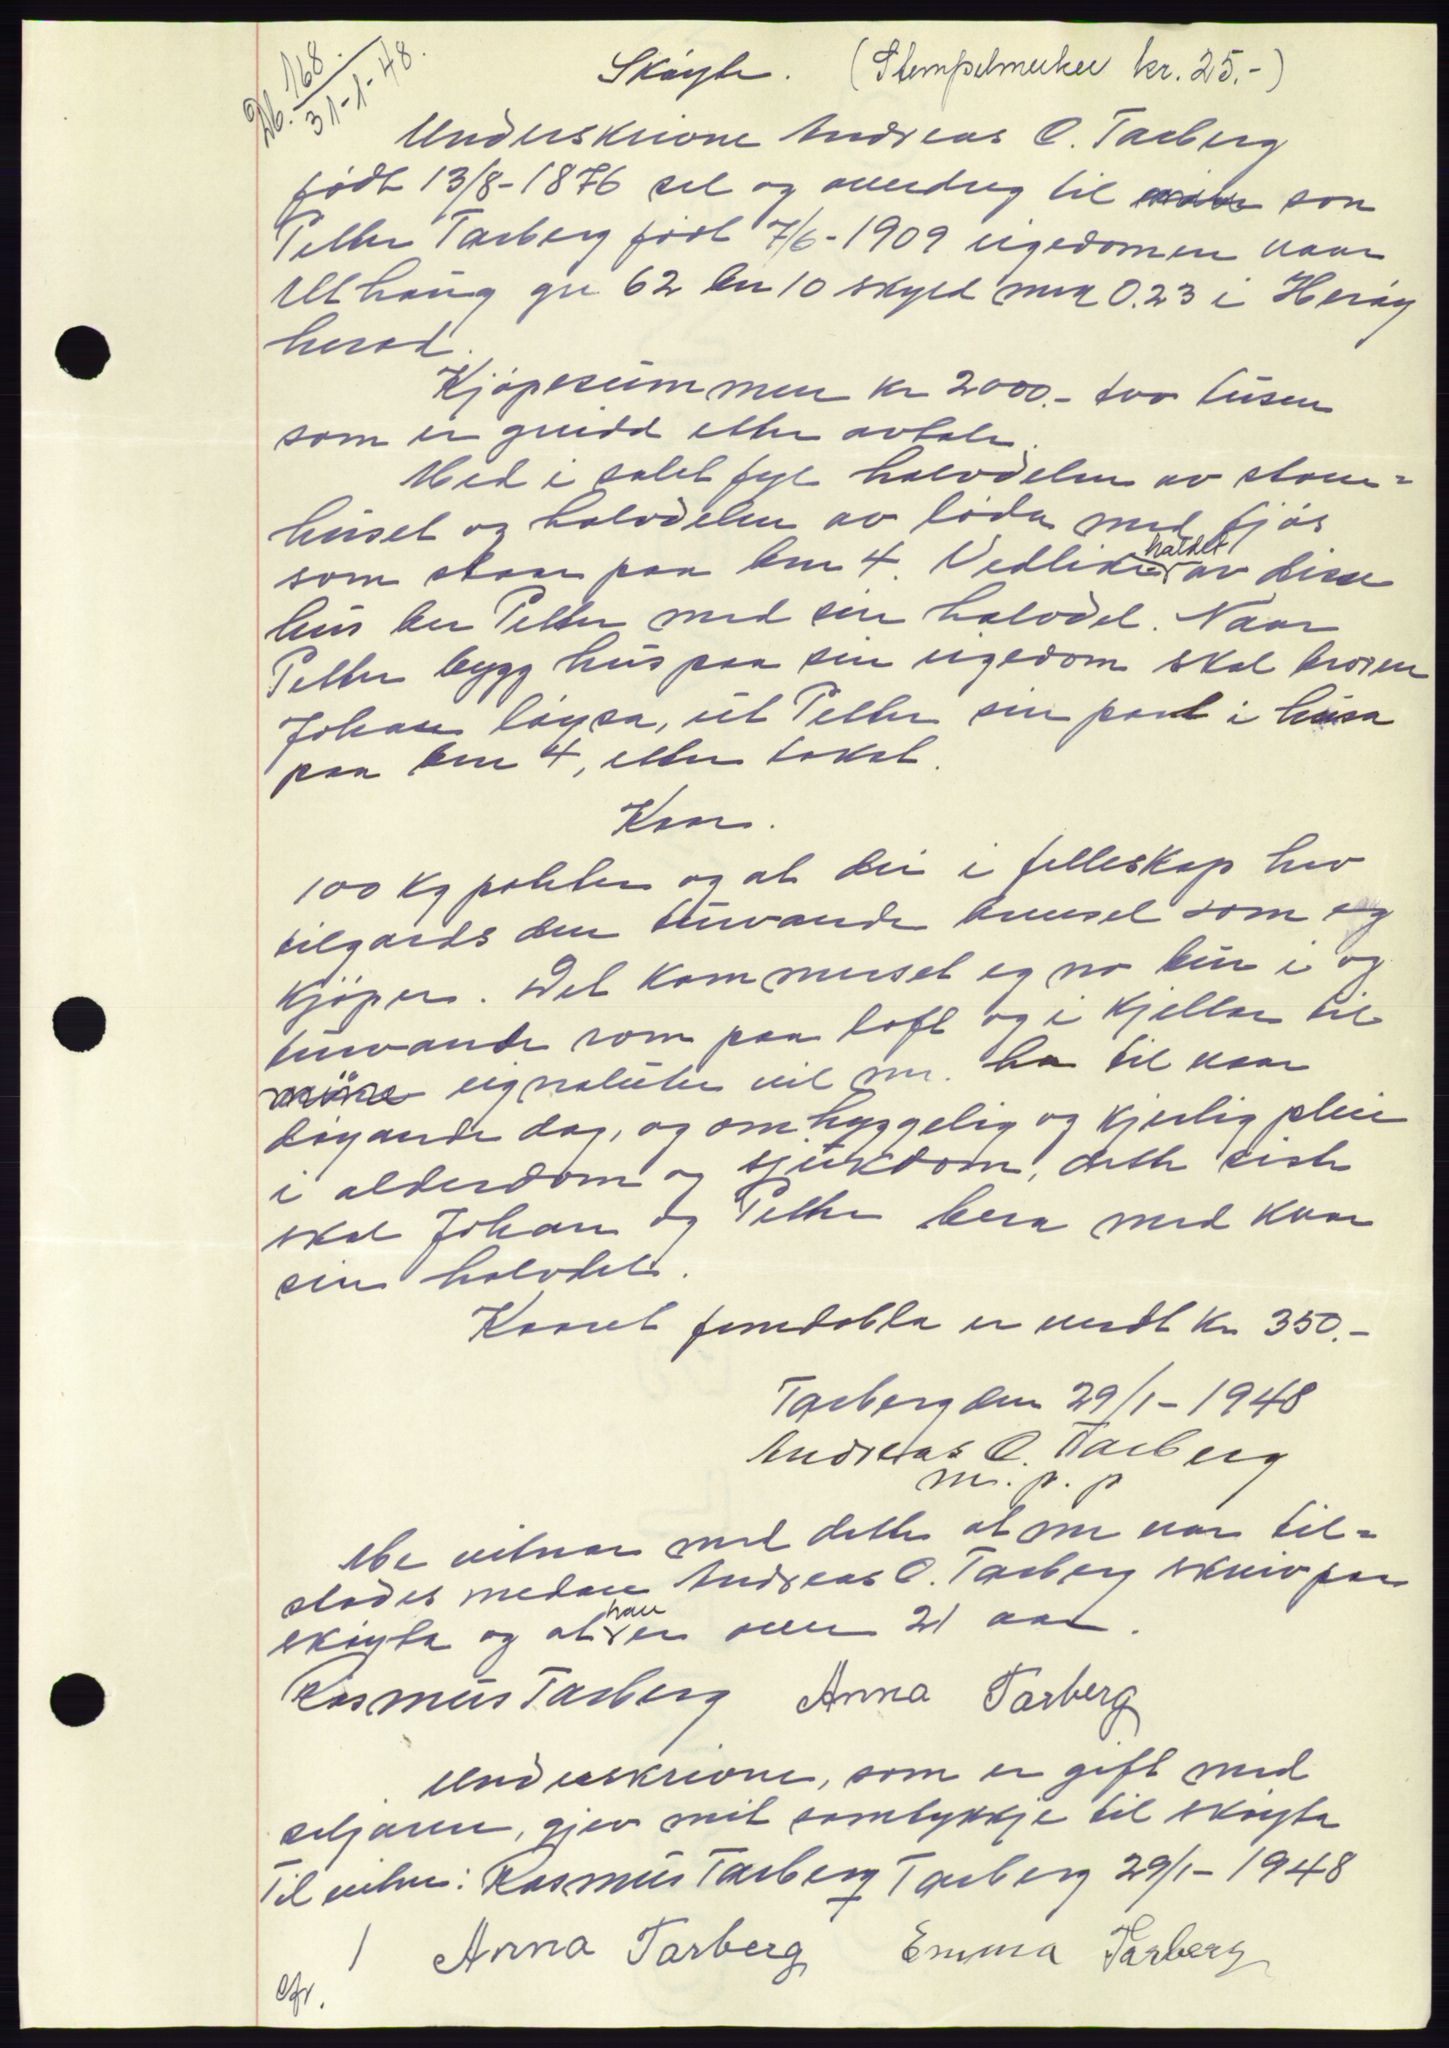 Db. 168.
31-1-48.
Skøyte. (Stempelmerker kr. 25.-)
Underskrivne Andreas O. Tarberg
født 13/8-1876 sel og overdreg til min son
Petter Tarberg født 7/6-1909 eigedomen vaar
Uthaug gnr 62 bnr 10 skyld mrk 0.23 i Herøy
herad.
Kjøpesummen kr 2000.- tvo tusen
som er greidd etter avtale.
Med i salet fyl halvdelen av stove=
huset og halvdelen av løda med fjøs
som staar paa bnr 4. Vedlikehaldet av disse
hus ber Petter med sin halvdel. Naar
Petter bygg hus paa sin eigedom skal broren
Johan løysa, ut Petter sin part i husa
paa bnr 4, etter takst.
Kaar.
100 kg poteter og at dei i felleskap hev
tilgards den turvande brensel som eg
kjøper. Det kammerset eg no bur i og
turvande rom paa loft og i kjellar til
mine eignaluter vil me ha til vaar
døyande dag, og omhyggelig og kjerlig pleie
i alderdom og sjukdom, dette siste
skal Johan og Petter bera med kvar
sin halvdel.
Kaaret femdobla er verdt kr 350.-
Tarberg den 29/1-1948
Andreas O. Tarberg
m. p. p
Me vitnar med dette at me var til=
stades medan Andreas O. Tarberg skreiv paa
skøyta og at han er over 21 aar.
Rasmus Tarberg Anna Tarberg
Underskrivne, som er gift med
seljaren, gjev mit samtykkje til skøyta
Til vitne: Rasmus Tarberg Tarberg 29/1-1948
Anna Tarberg Emma Tarberg